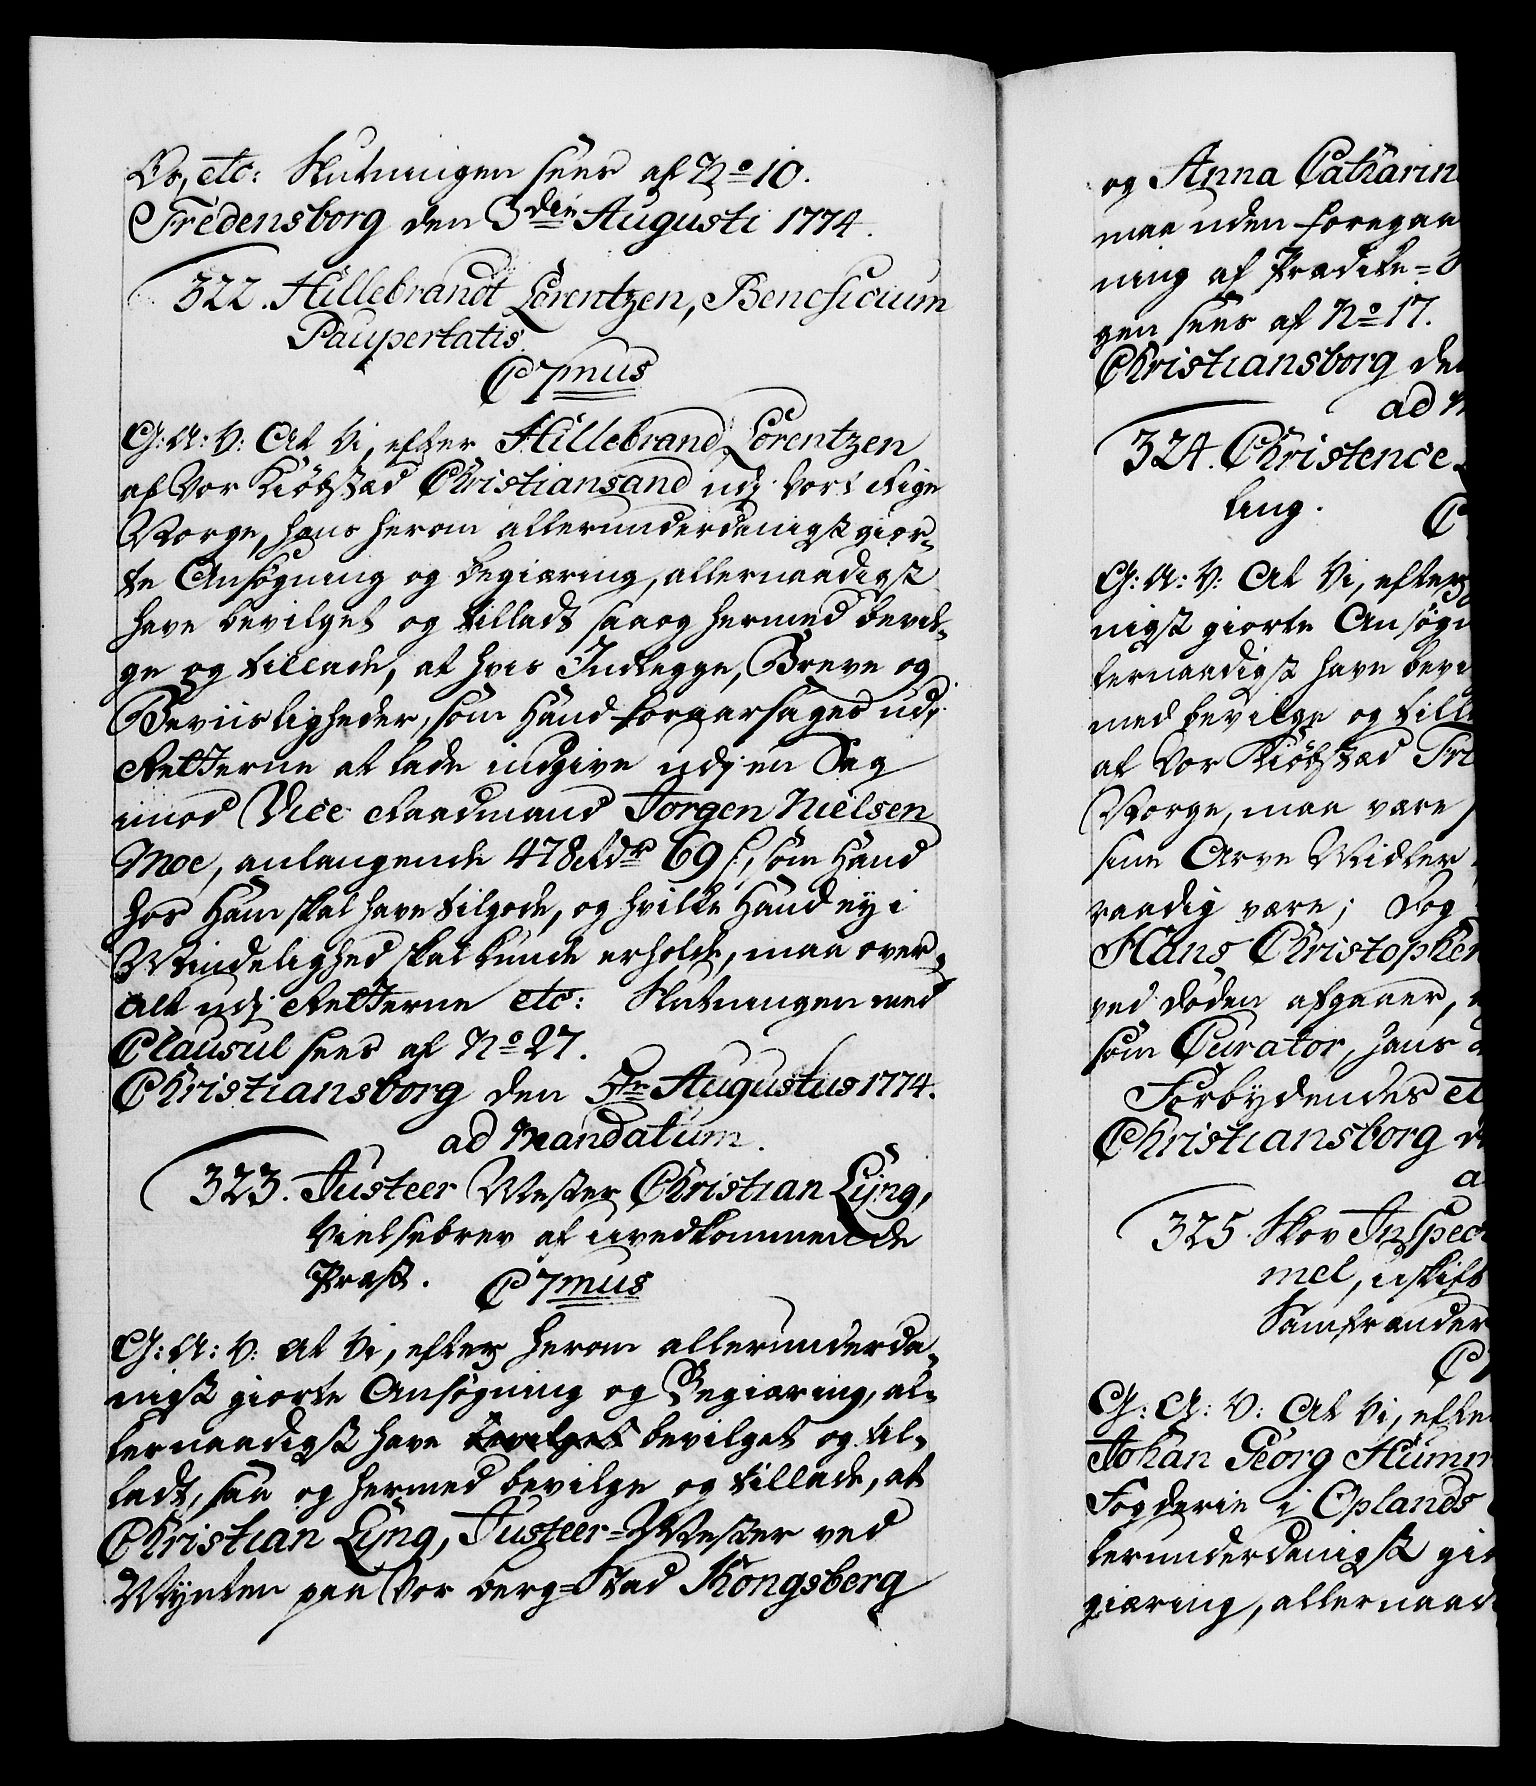 Os, etc: Slutningen sees af No 10.
Fredensborg den 3die Augusti 1774.
322. Hillebrandt Lorentzen, Beneficium
Paupertatis.
C 7mus
G: A: V: At Vi, efter Hillebrand Lorentzen
af Vor Kiöbstad Christiansand udj Vort Rige
Norge, hans herom allerunderdanigst gior-
te Ansögning og Begiæring, allernaadigst
have bevilget og tilladt saa og hermed bevil-
ge og tillade, at hvis Indlegge, Breve og
Beviisligheder, som Hand foraarsages udj
Retterne at lade indgive udj en Sag
imod Vice Raadmand Jorgen Nielsen
Moe, anlangende 478 Rdr 69 s, som Hand
hos Ham skal have tilgode, og hvilke Hand ey i
Mindelighed skal kunde erholde, maa over-
alt udj Retterne etc: Slutningen med
Clausul sees af No 27.
Christiansborg den 5te Augustus 1774.
ad Mandatum.
323. Justeer Mester Christian Lyng,
Vielsebrev af uvedkommende
Præst. C 7mus
G: A: V: At Vi, efter herom allerunderda-
nigst giorte Ansögning og Begiæring, al-
lernaadigst have bevilget bevilget og til-
ladt, saa og hermed bevilge og tillade, at
Christian Lyng, Justeer-Mester ved
Mynten paa Vor Berg-Stad Kongsberg
og Anna Catharin
maa uden foregaa
ning af Prædike-
gen sees af No 17.
Christiansborg de
ad M
324. Christence
ling. C
G: A: V: At Vi, efter
nigst giorte Ansögn
lernaadigst have bevi
med bevilge og till
af Vor Kiöbstad Fri
Norge, maa være
sine Arve Midler
raadig være; Dog
Hans Christopher
ved Döden afgaaer,
som Curator, hans
Forbydendes et
Christiansborg d
a
325. Skov Inspec
mel, uskift
Samfrænder
C
G: A: V: At Vi, efte
Johan Georg Humm
Fogderie i Oplands
lerunderdanigst gio
giæring, allernaad